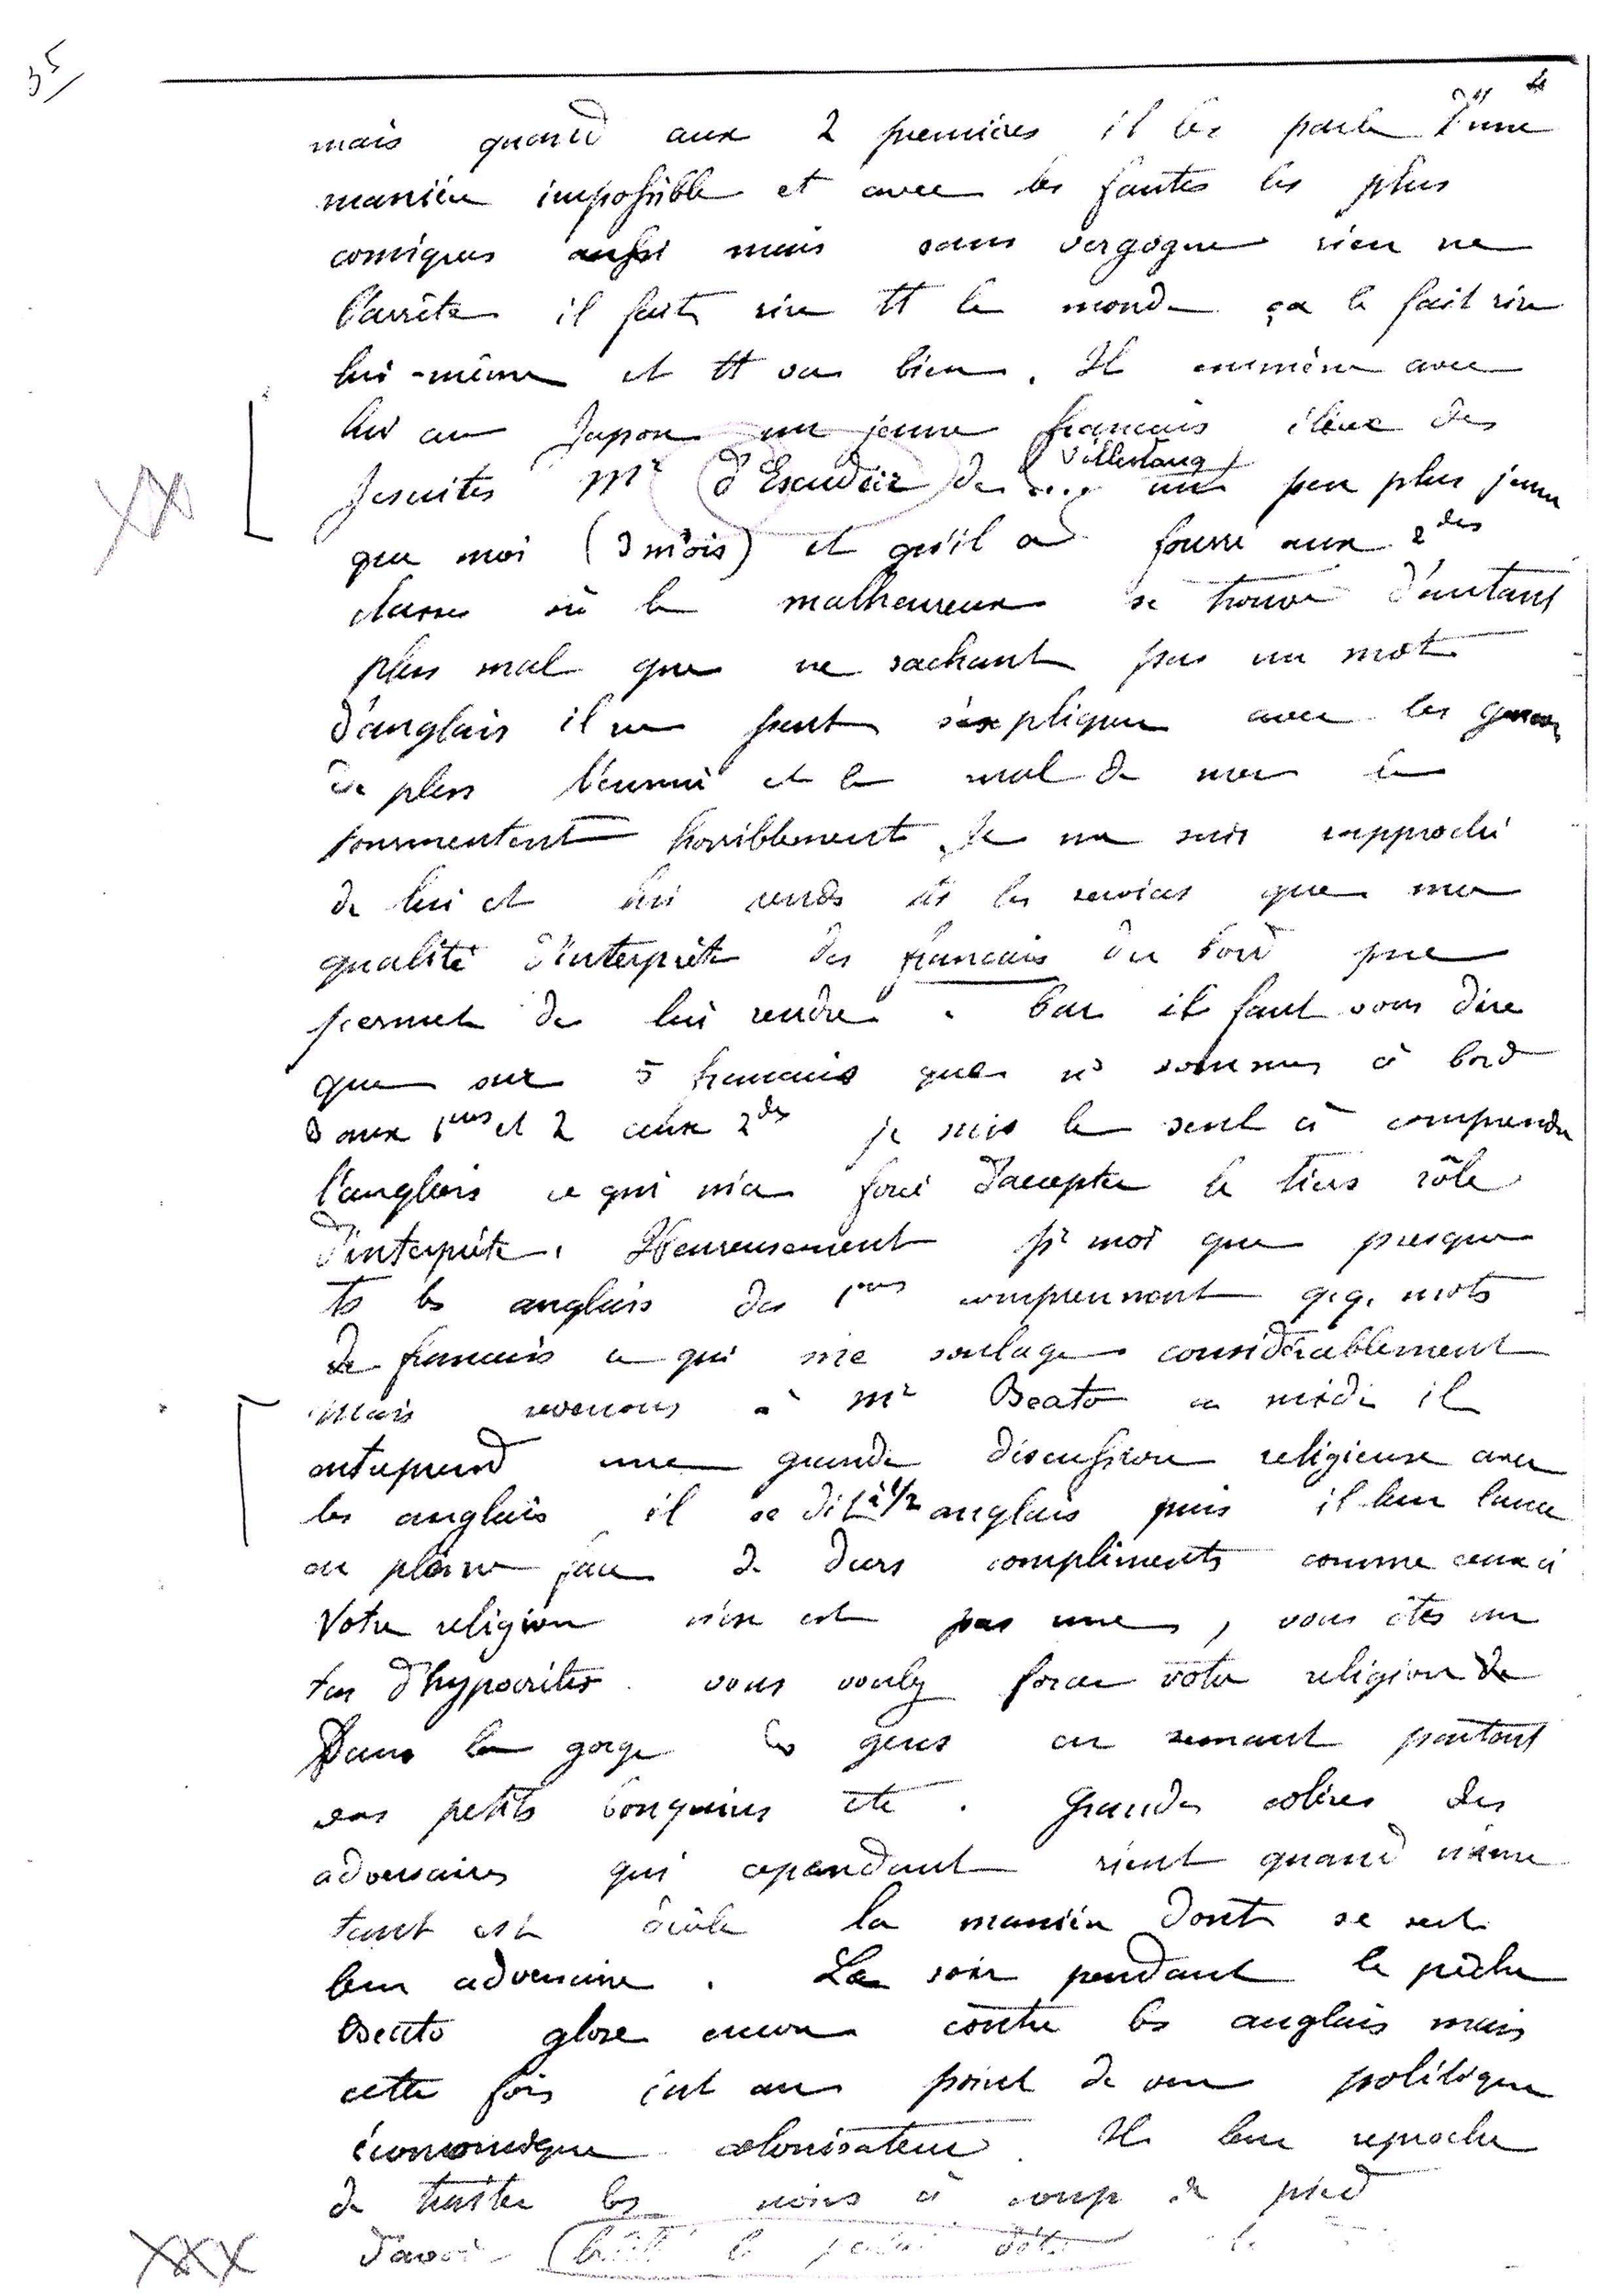 35
4
mais quand aux 2 premières il les parle d'une
manière impossible et avec les fautes les plus
comiques aussi mais sans vergogne rien ne
l'arrête il fait rire tt le monde ça le fait rire
lui-même et tt va bien. Il emmène avec
lui au Japon un jeune francais élève des
Jesuites Mr d'Escudéir de Villestang un peu plus jeune
que moi (3 mois) et qu'il a fourré aux 2des
classes où le malheureux se trouve d'autant
plus mal que ne sachant pas un mot
d'anglais il ne peut s'expliquer avec les garcons
de plus l'ennui et le mal de mer le
tourmentent horriblement. Je me suis rapproché
de lui et lui rends ts les services que ma
qualité d'interprète des francais du bord me
permet de lui rendre. Car il faut vous dire
que sur 5 francais que ns sommes à bord
3 aux 1eres et 2 aux 2des je suis le seul à comprendre
l'anglais ce qui m'a forcé d'accepter le tiers rôle
d'interprète. Heureusement pr moi que presque
ts les anglais des 1eres comprennent q.q. mots
de francais ce qui me soulage considérablement
Mais revenons à Mr Beato a midi il
entreprend une grande discussion religieuse avec
les anglais il se dit à 1/2 anglais puis il leur lance
en pleine face de durs compliments comme ceux ci
Votre religion n'en est pas une, vous êtes un
tas d'hypocrites vous voulez forcer votre religion de
Dans la gorge des gens en semant partout
vos petits bouquins etc. Grandes colères des
adversaires qui cependant rient quand même
tant est drôle la manière dont se sert
leur adversaire. Le soir pendant la pêche
Beato glose encore contre les anglais mais
cette fois c'est au point de vue politique
économique colonisateur. Il leur reproche
de traiter les noirs à coup de pied
d'avoir brûlé le palais d'été